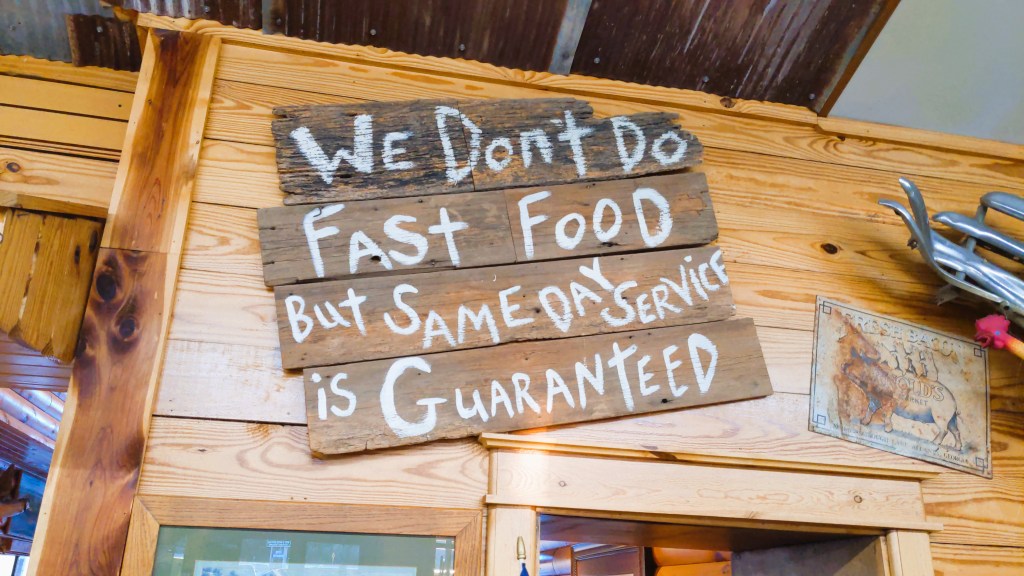 We Don't Do
Fast Food
But Same Day Service
is Guaranteed